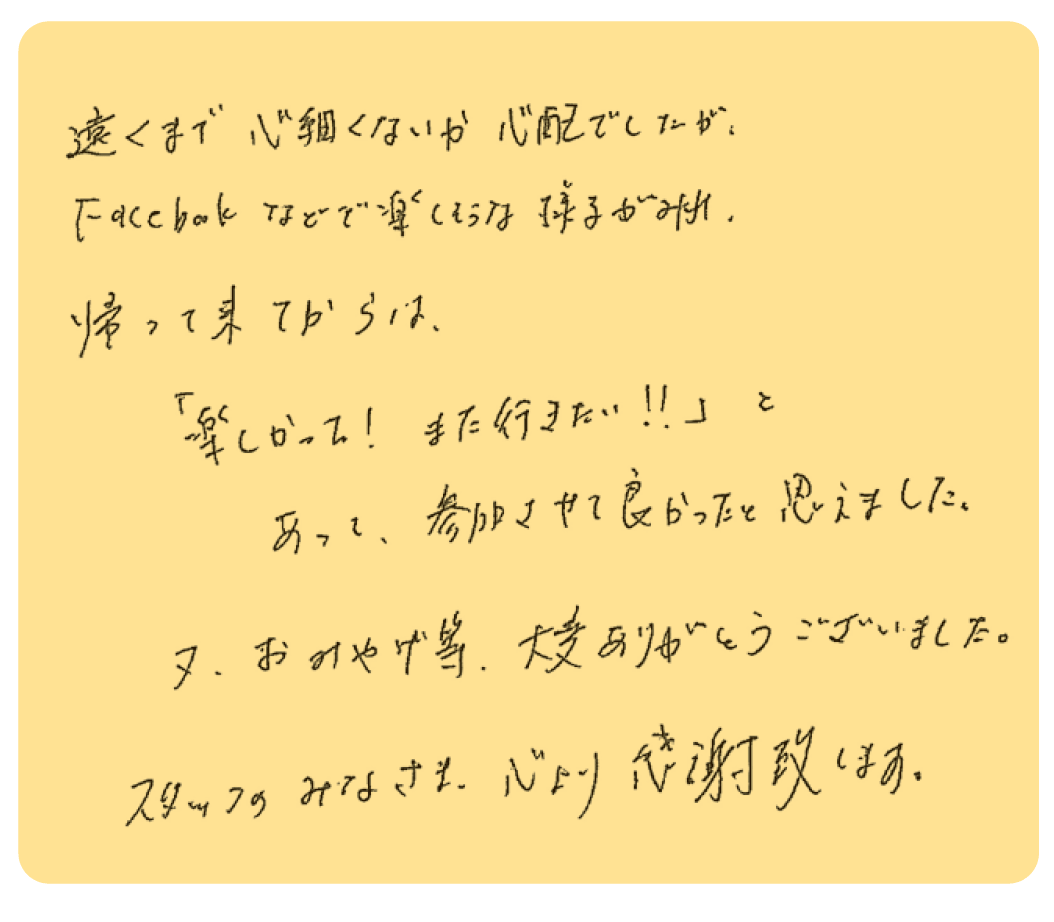 遠くまで 心細くないか 心配でしたが、
Facebook などで楽しそうな 様子がみれ、
帰って来てからは、
「楽しかった! また行きたい!!」 と
あって、参加させて良かったと思えました。
又、おみやげ等、大変ありがとうございました。
スタッフの みなさま、心より 感謝致します。